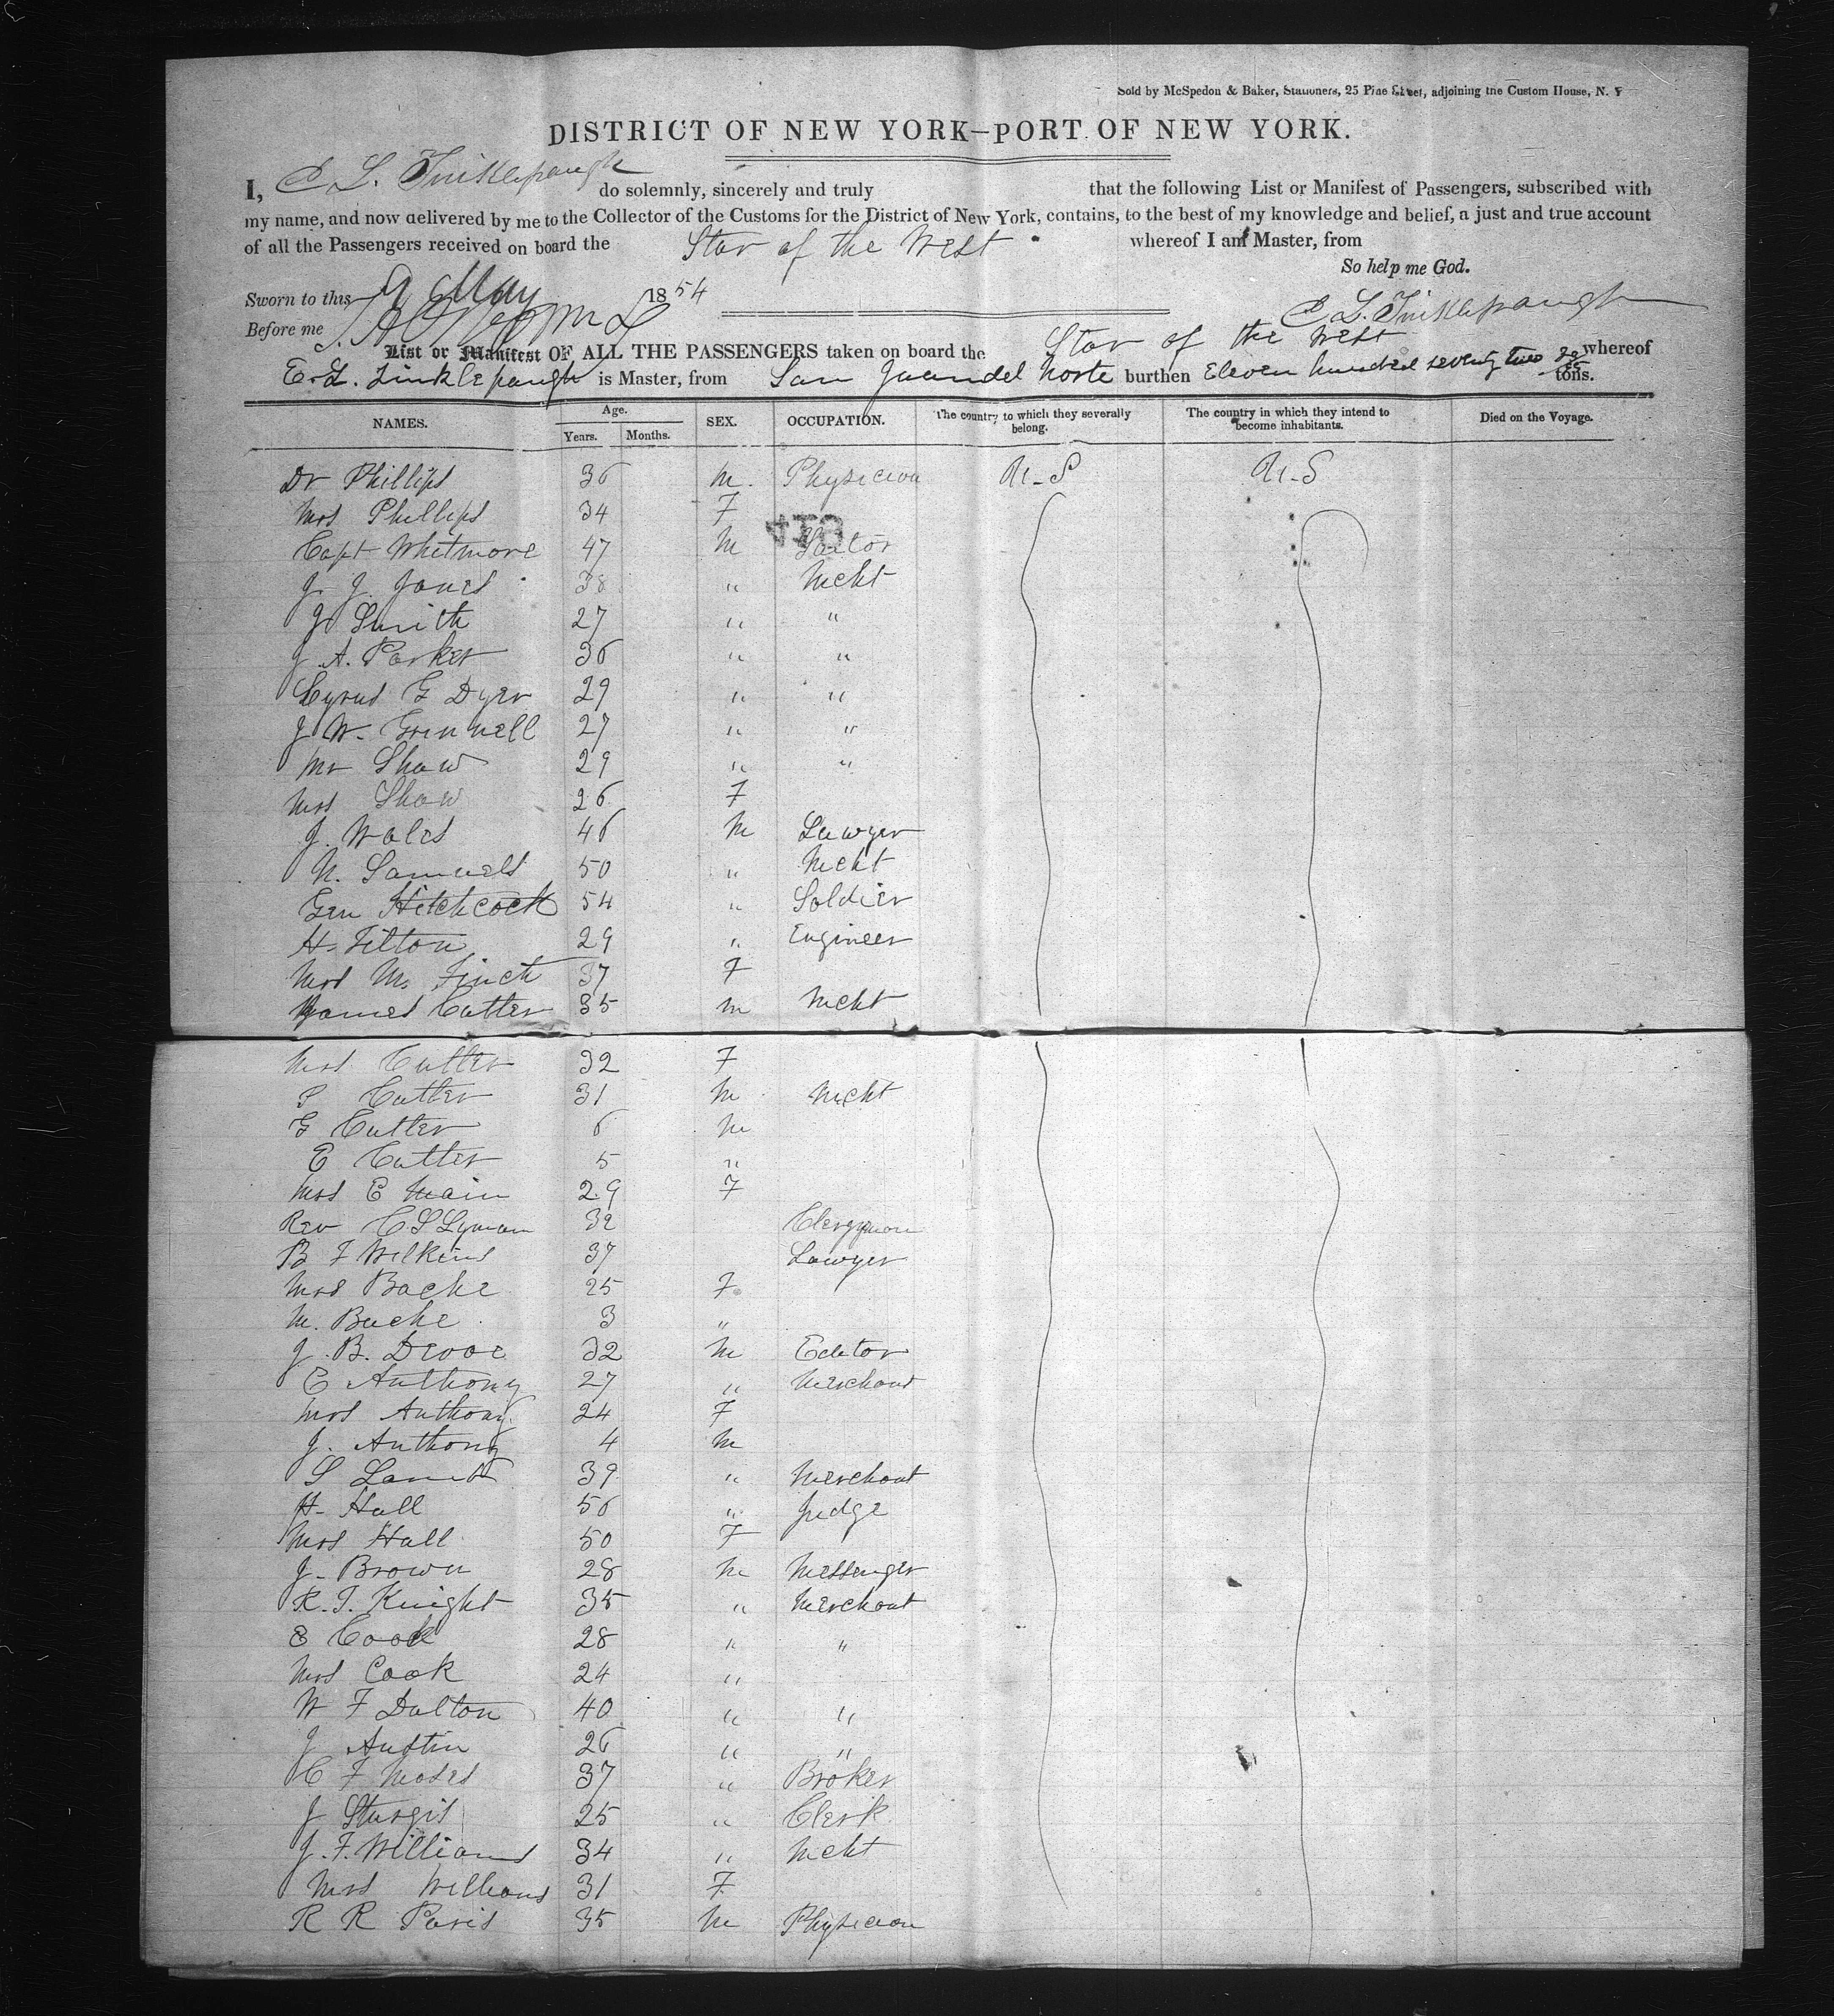 Sold by McSpedon & Baker, Stationers, 25 Pine Street, adjoining the Custom House, N. Y
DISTRICT OF NEW YORK—PORT OF NEW YORK.
I, E L. Tinklepaugh do solemnly, sincerely and truly that the following List or Manifest of Passengers, subscribed with
my name, and now delivered by me to the Collector of the Customs for the District of New York, contains, to the best of my knowledge and belief, a just and true account
of all the Passengers received on board the Star of the West whereof I am Master, from
So help me God.
Sworn to this 9 May 1854
E L. Tinklepaugh
Before me
List or Manifest OF ALL THE PASSENGERS taken on board the Star of the West whereof
E. L. Tinklepaugh is Master, from San Juandel Norte burthen Eleven hundred seventy two tons.
NAMES. Age. Years. Months. SEX. OCCUPATION. The country to which they severally belong. The country in which they intend to become inhabitants. Died on the Voyage.
Dr Phillips 36 M. Physician U-S U-S
Mrs Phillips 34 F
Capt Whitmore 47 M
J. J. Jones 38 " Mcht
J Smith 27 " "
J. A. Parker 36 " "
Cyrus G Dyer 29 " "
J W. Grinnell 27 " "
Mr Shaw 29 " "
Mrs Shaw 26 F
J. Wales 46 M Lawyer
N. Samuels 50 " Mcht
Gen Hitchcock 54 " Soldier
H. Tilton 29 " Engineer
Mrs M. Finch 37 F
James Cutter 35 M Mcht
Mrs Cutter 32 F
S Cutter 31 M Mcht
G Cutter 6 M
E Cutter 5 "
Mrs E Main 29 F
Rev C S Lyman 32 Clergyman
B F Wilkins 37 Lawyer
Mrs Bache 25 F
M. Bache 3 "
J. B. Devoe 32 M Editor
E Anthony 27 " Merchant
Mrs Anthony 24 F
J. Anthony 4 M
S 39 " Merchant
H- Hall 56 " Judge
Mrs Hall 50 F
J- Brown 28 M Messenger
R. T. Knight 35 " Merchant
E Cook 28 " "
Mrs Cook 24 "
W F Dalton 40 " "
J Austin 26 " "
C F Moses 37 " Broker
J Sturgis 25 " Clerk
J. F. Williams 34 " Mcht
Mrs Williams 31 F
R R Paris 35 M Physician